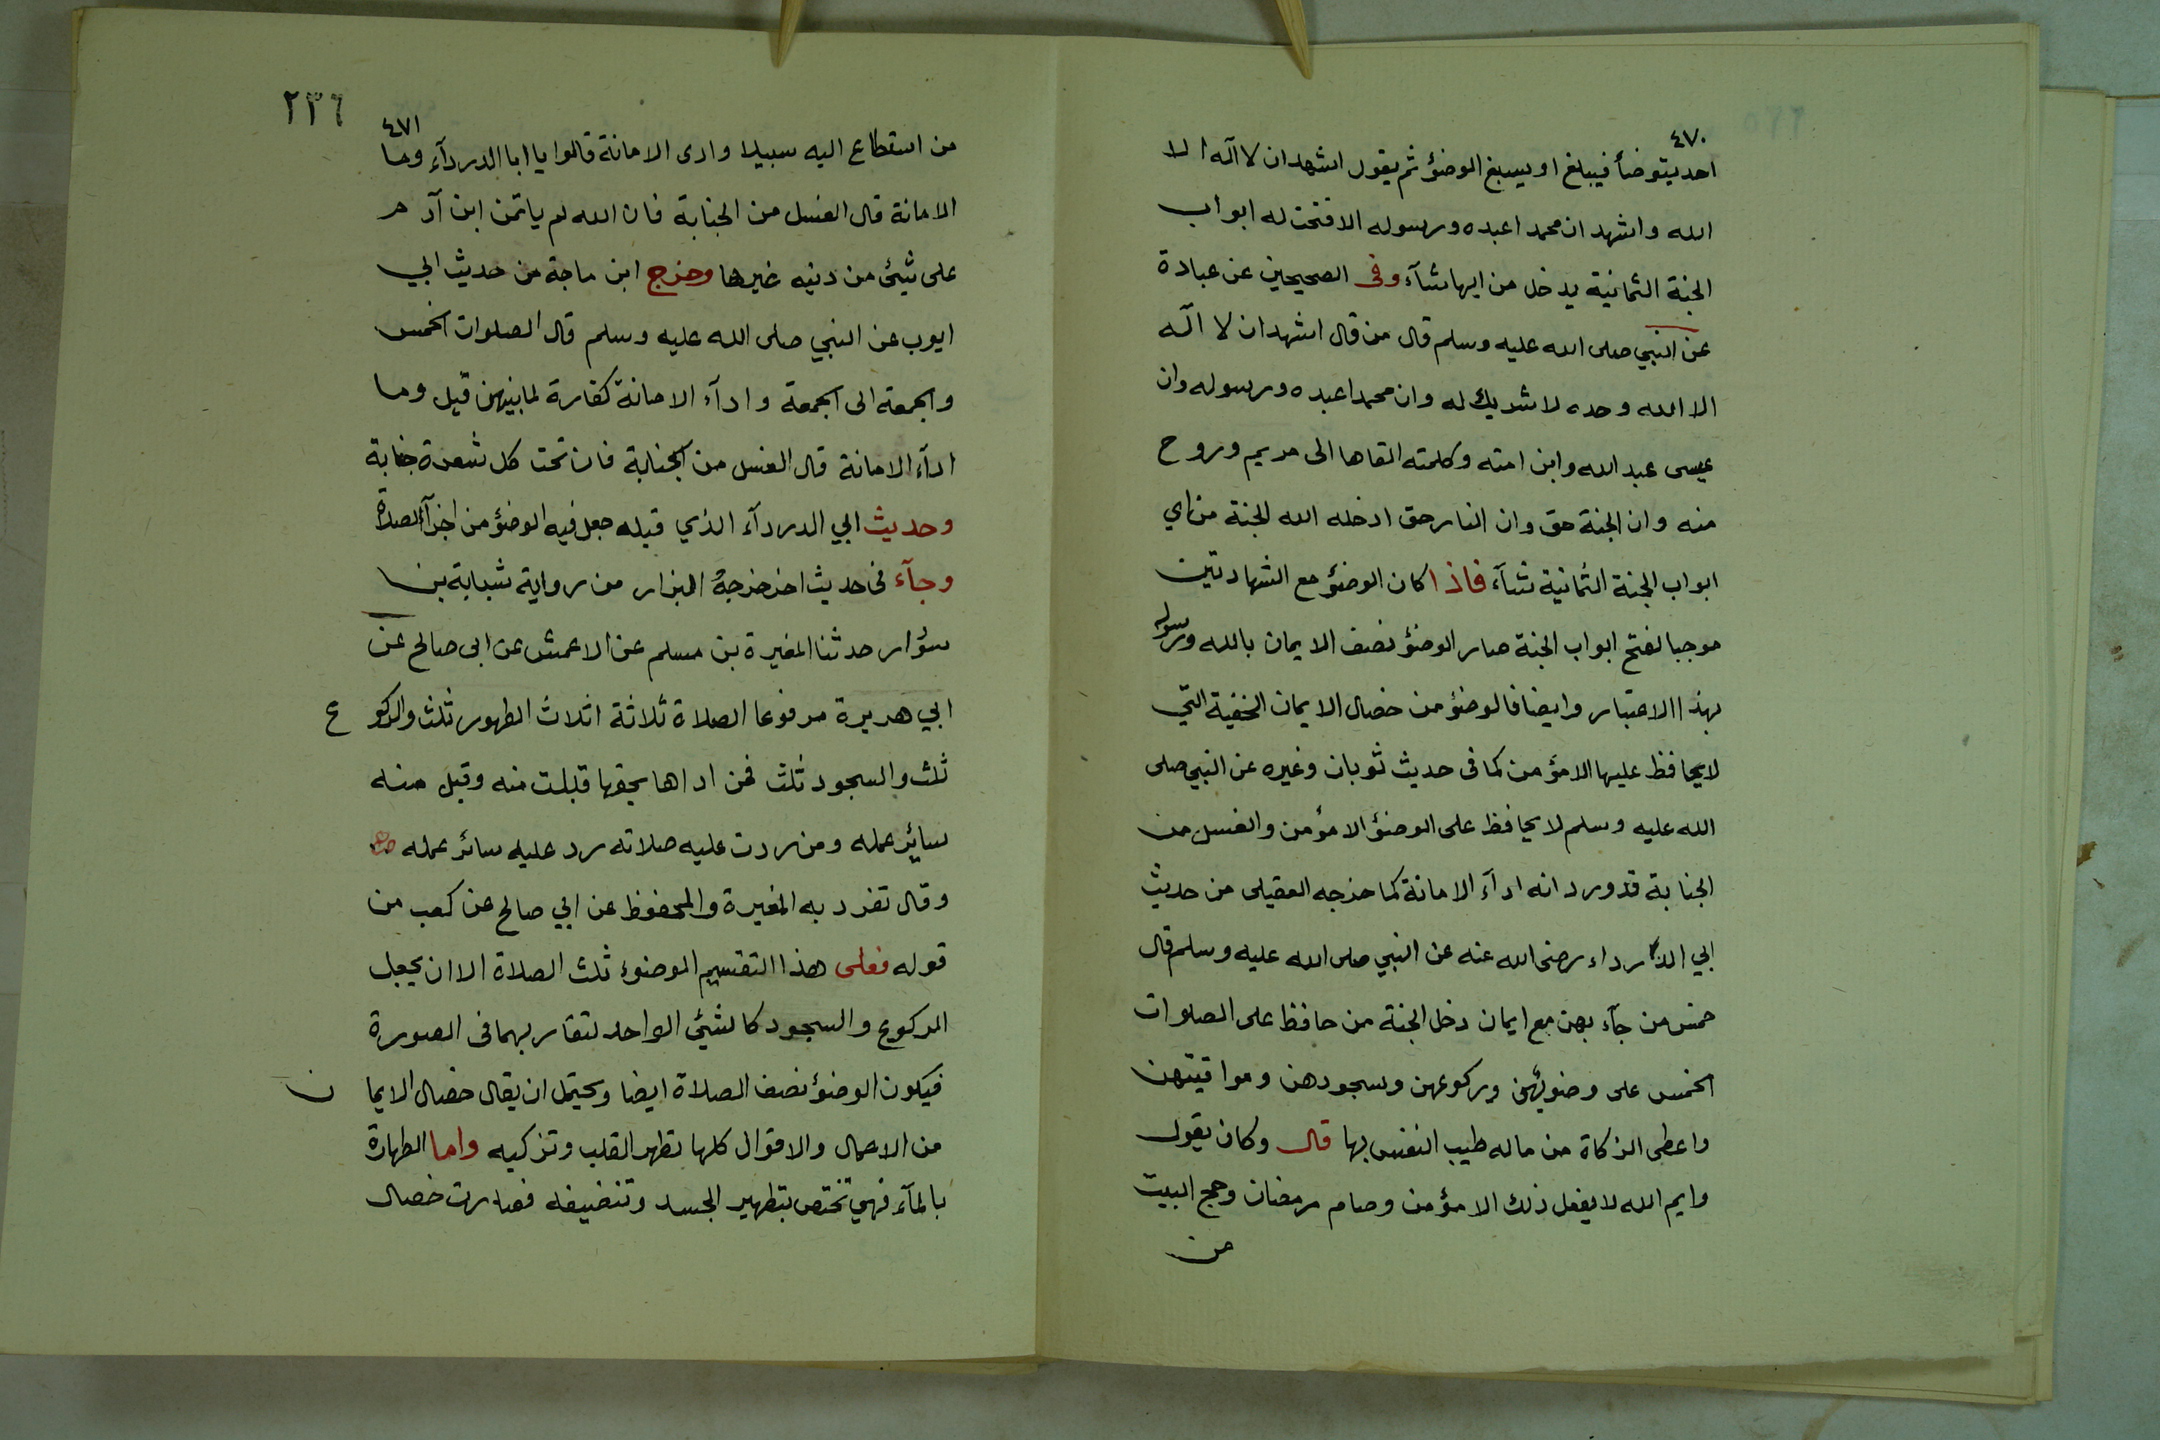 ٤٧٠
احد يتوضأ فيبلغ او يسبغ الوضؤ ثم يقول اشهد ان لا اله الا
الله واشهد ان محمدا عبده ورسوله الا فتحت له ابواب
الجنة الثمانية يدخل من ايها شآء وفى الصحيحين عن عبادة
عن النبي صلى الله عليه وسلم قال من قال اشهد ان لا اله
الا الله وحده لا شريك له وان محمدا عبده ورسوله وان
عيسى عبد الله وابن امته وكلمته القاها الى مريم وروح
منه وان الجنة حق وان النار حق ادخله الله الجنة من اي
ابواب الجنة الثمانية شآء فاذا كان الوضؤ مع الشهادتين
موجبا لفتح ابواب الجنة صار الوضؤ نصف الايمان بالله ورسوله
بهذا الاعتبار وايضا فالوضؤ من خصال الايمان الخفية التي
لا يحافظ عليها الا مؤمن كما فى حديث ثوبان وغيره عن النبي صلى
الله عليه وسلم لا يحافظ على الوضؤ الا مؤمن والغسل من
الجنابة قد ورد انه ادآء الامانة كما خرجه العقيلى من حديث
ابي الدرداء رضى الله عنه عن النبي صلى الله عليه وسلم قال
خمس من جآء بهن مع ايمان دخل الجنة من حافظ على الصلوات
الخمس على وضويهن وركوعهن وسجودهن ومواقيتهن
واعطى الزكاة من ماله طيب النفس بها قال وكان يقول
وايم الله لا يفعل ذلك الا مؤمن وصام رمضان وحج البيت
من
٢٣٦
٤٧١
من استطاع اليه سبيلا وادى الامانة قالوا يا ابا الدردآء وما
الامانة قال الغسل من الجنابة فان الله لم ياتمن ابن آدم
على شئ من دينه غيرها وخرج ابن ماجة من حديث ابي
ايوب عن النبي صلى الله عليه وسلم قال الصلوات الخمس
والجمعة الى الجمعة وادآء الامانة كفارة لما بينهن قيل وما
ادآء الامانة قال الغسل من الجنابة فان تحت كل شعرة جنابة
وحديث ابي الدردآء الذي قبله جعل فيه الوضؤ من اجزآء الصلاة
وجآء فى حديث اخر خرجه البزار من رواية شبابة بن
سوار حدثنا المغيرة بن مسلم عن الاعمش عن ابى صالح عن
ابي هريرة مرفوعا الصلاة ثلاثة اثلاث الطهور ثلث والركوع
ثلث والسجود ثلث فمن اداها بحقها قبلت منه وقبل منه
سائر عمله ومن ردت عليه صلاته رد عليه سائر عمله
وقال تفرد به المغيرة والمحفوظ عن ابي صالح عن كعب من
قوله فعلى هذا التقسيم الوضوء ثلث الصلاة الا ان يجعل
الركوع والسجود كالشئ الواحد لتقاربهما فى الصورة
فيكون الوضؤ نصف الصلاة ايضا ويحتمل ان يقال خصال الايمان
من الاعمال والاقوال كلها تطهر القلب وتزكيه واما الطهارة
بالمآء فهي تختص بتطهير الجسد وتنضيفه فصارت خصال